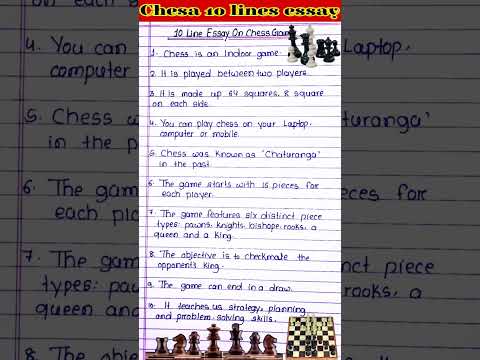 Chess 10 lines essay
10 Line Essay On Chess Game
1. Chess is an Indoor game.
2. It is played between two players.
3. It is made up 64 squares, 8 square
on each side.
4. You can play chess on your Laptop,
computer or mobile.
5. Chess was known as "Chaturanga"
in the past.
6. The game starts with 16 pieces for
each player.
7. The game features six distinct piece
types: pawns, knights, bishops, rooks, a
queen and a King.
8. The objective is to checkmate the
opponent's King.
9. The game can end in a draw.
10. It teaches us strategy, planning
and problem-solving skills.
4. You can
computer
5. Chess
in the past
6. The gam
each pla
7. The game
types: pa
queen an
8. The obje
Laptop,
mobile.
Chaturanga"
pieces for
distinct piece
rooks, a
the